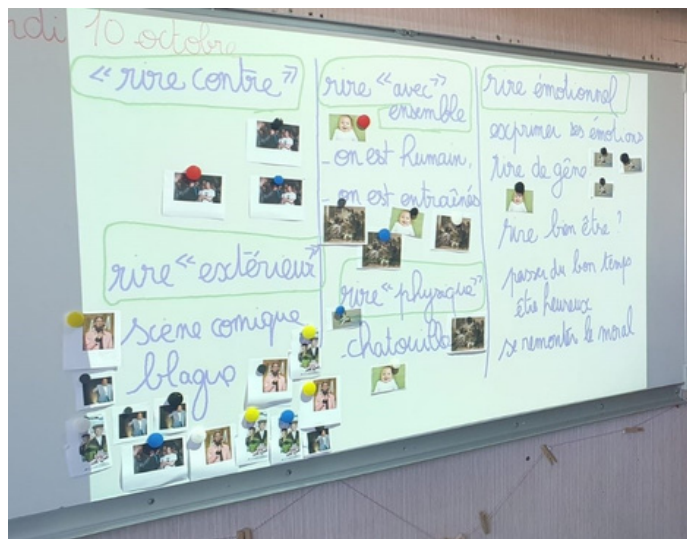 ndi 10 octobre
« rire contre »
rire « extérieur »
scène comique
blague
rire « avec »
ensemble
- on est humain,
- on est entraînés
rire « physique »
- chatouille
rire émotionnel
exprimer ses émotions
rire de gêne
rire bien être ?
passer du bon temps
être heureux
se remonter le moral